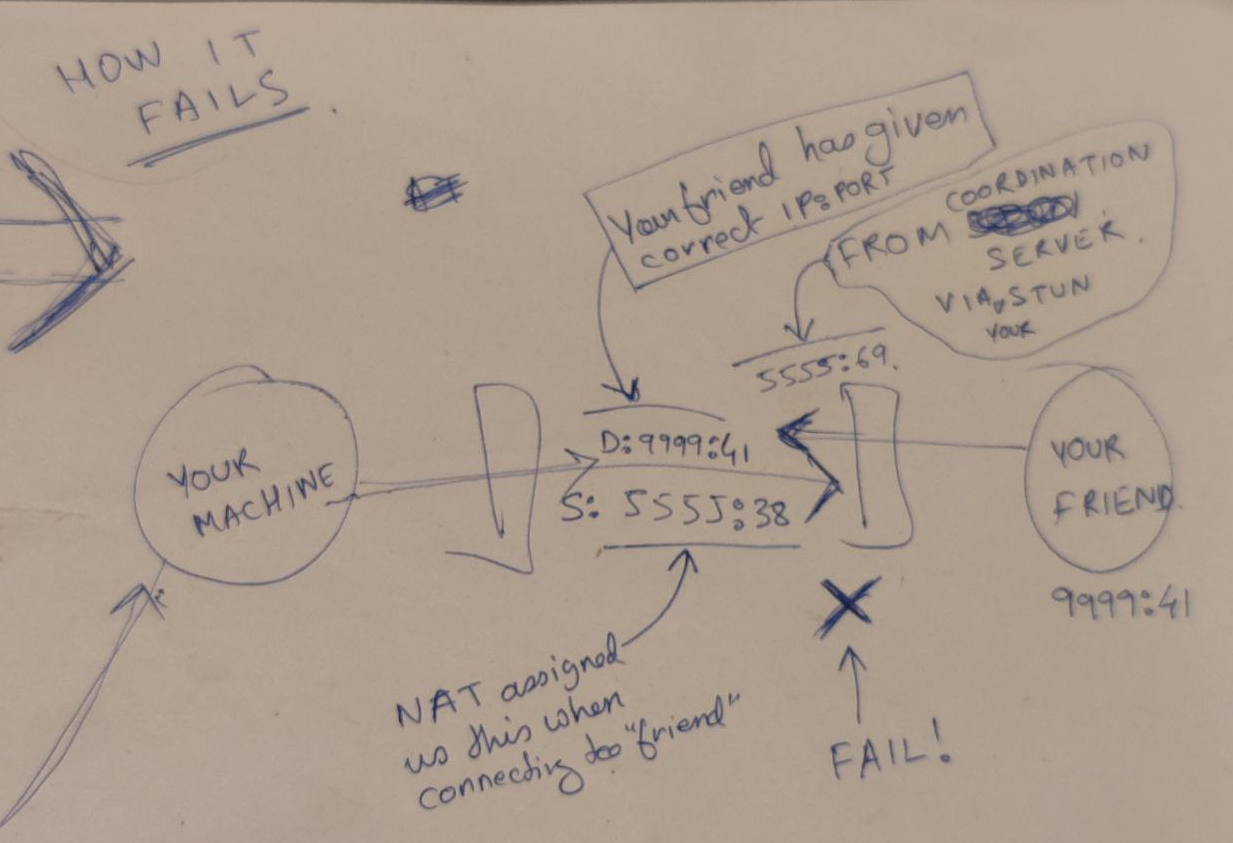 HOW IT
FAILS.
Your friend has given
correct IP:PORT
FROM COORDINATION
SERVER.
VIA STUN
YOUR
5555:69.
YOUR
MACHINE
D:9999:41
S: 5555:38
YOUR
FRIEND.
9999:41
NAT assigned
us this when
connecting to "friend"
FAIL!